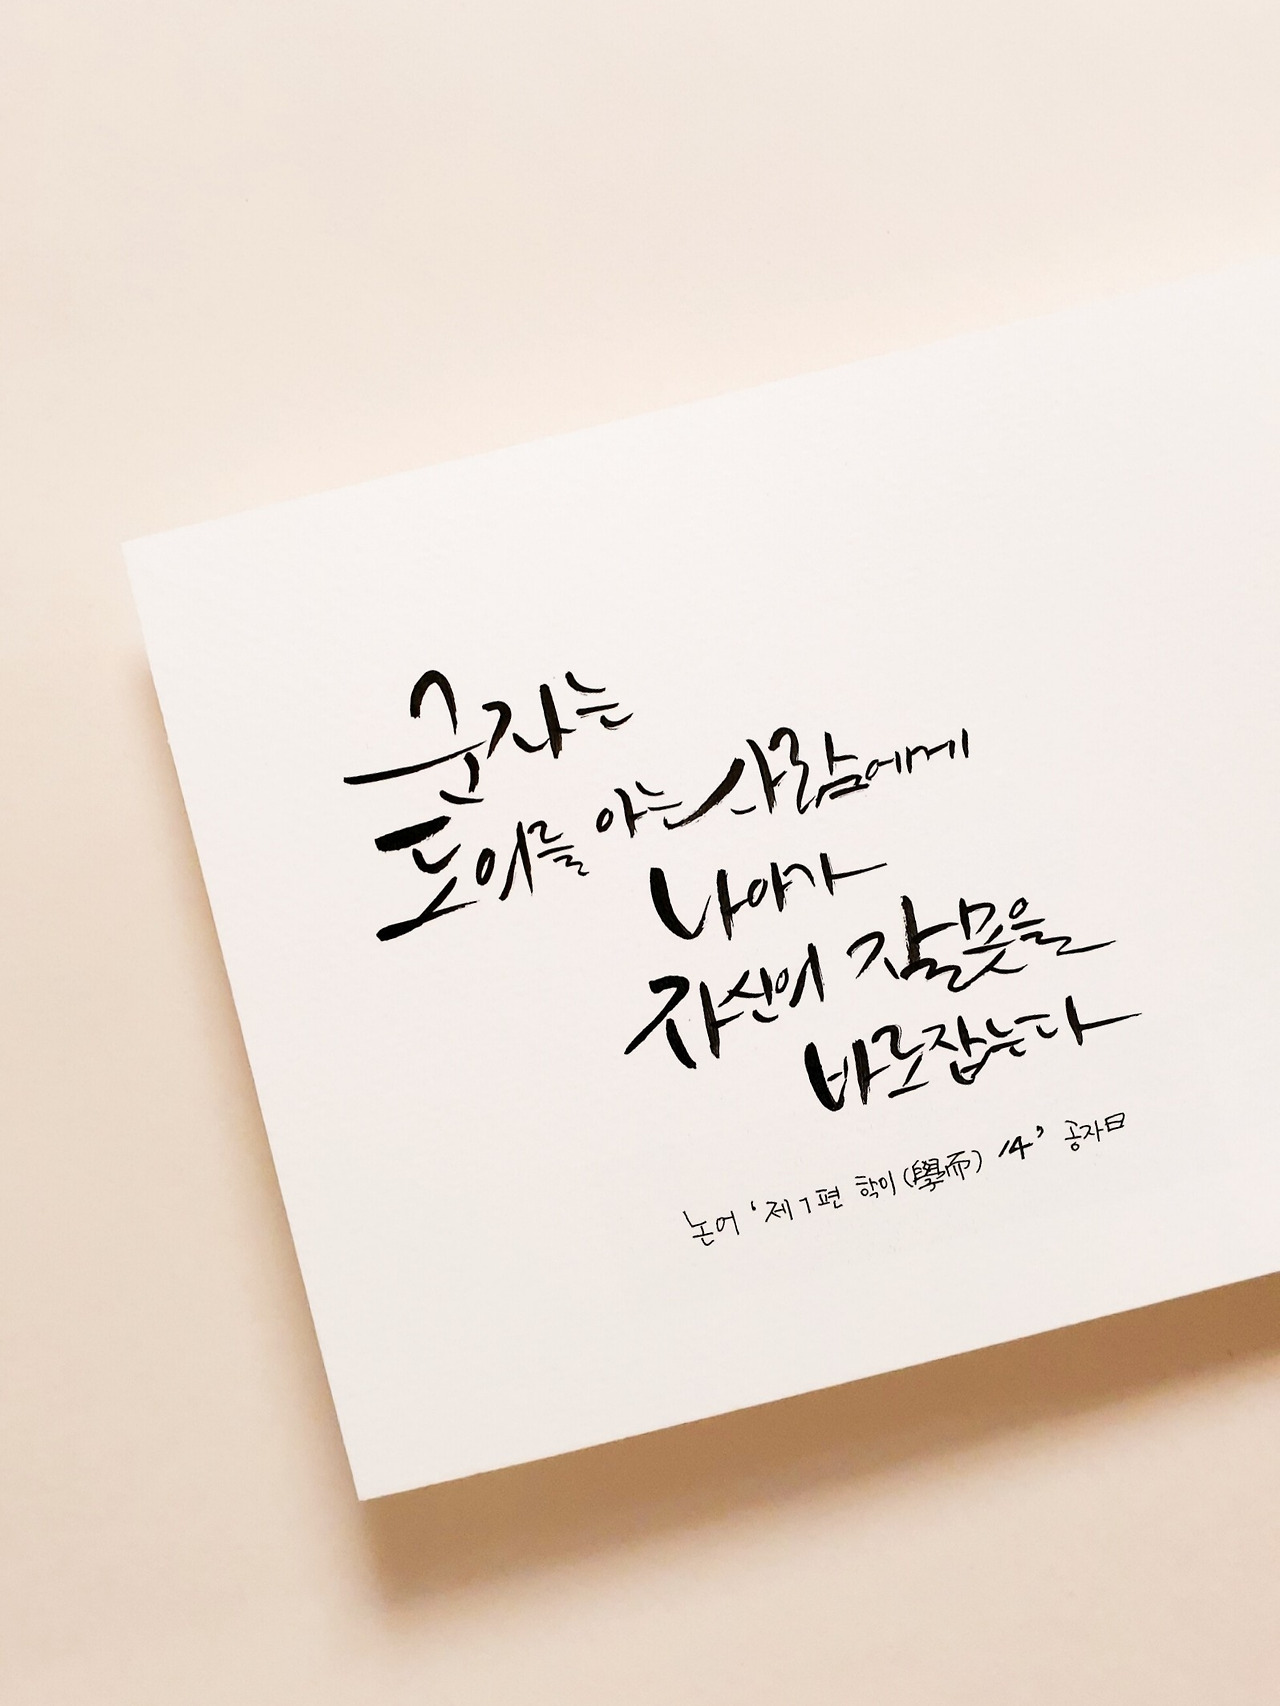 군자는
도의를 아는 사람에게
나아가
자신의 잘못을
바로잡는다
논어 '제1편 학이(學而) 14' 공자曰